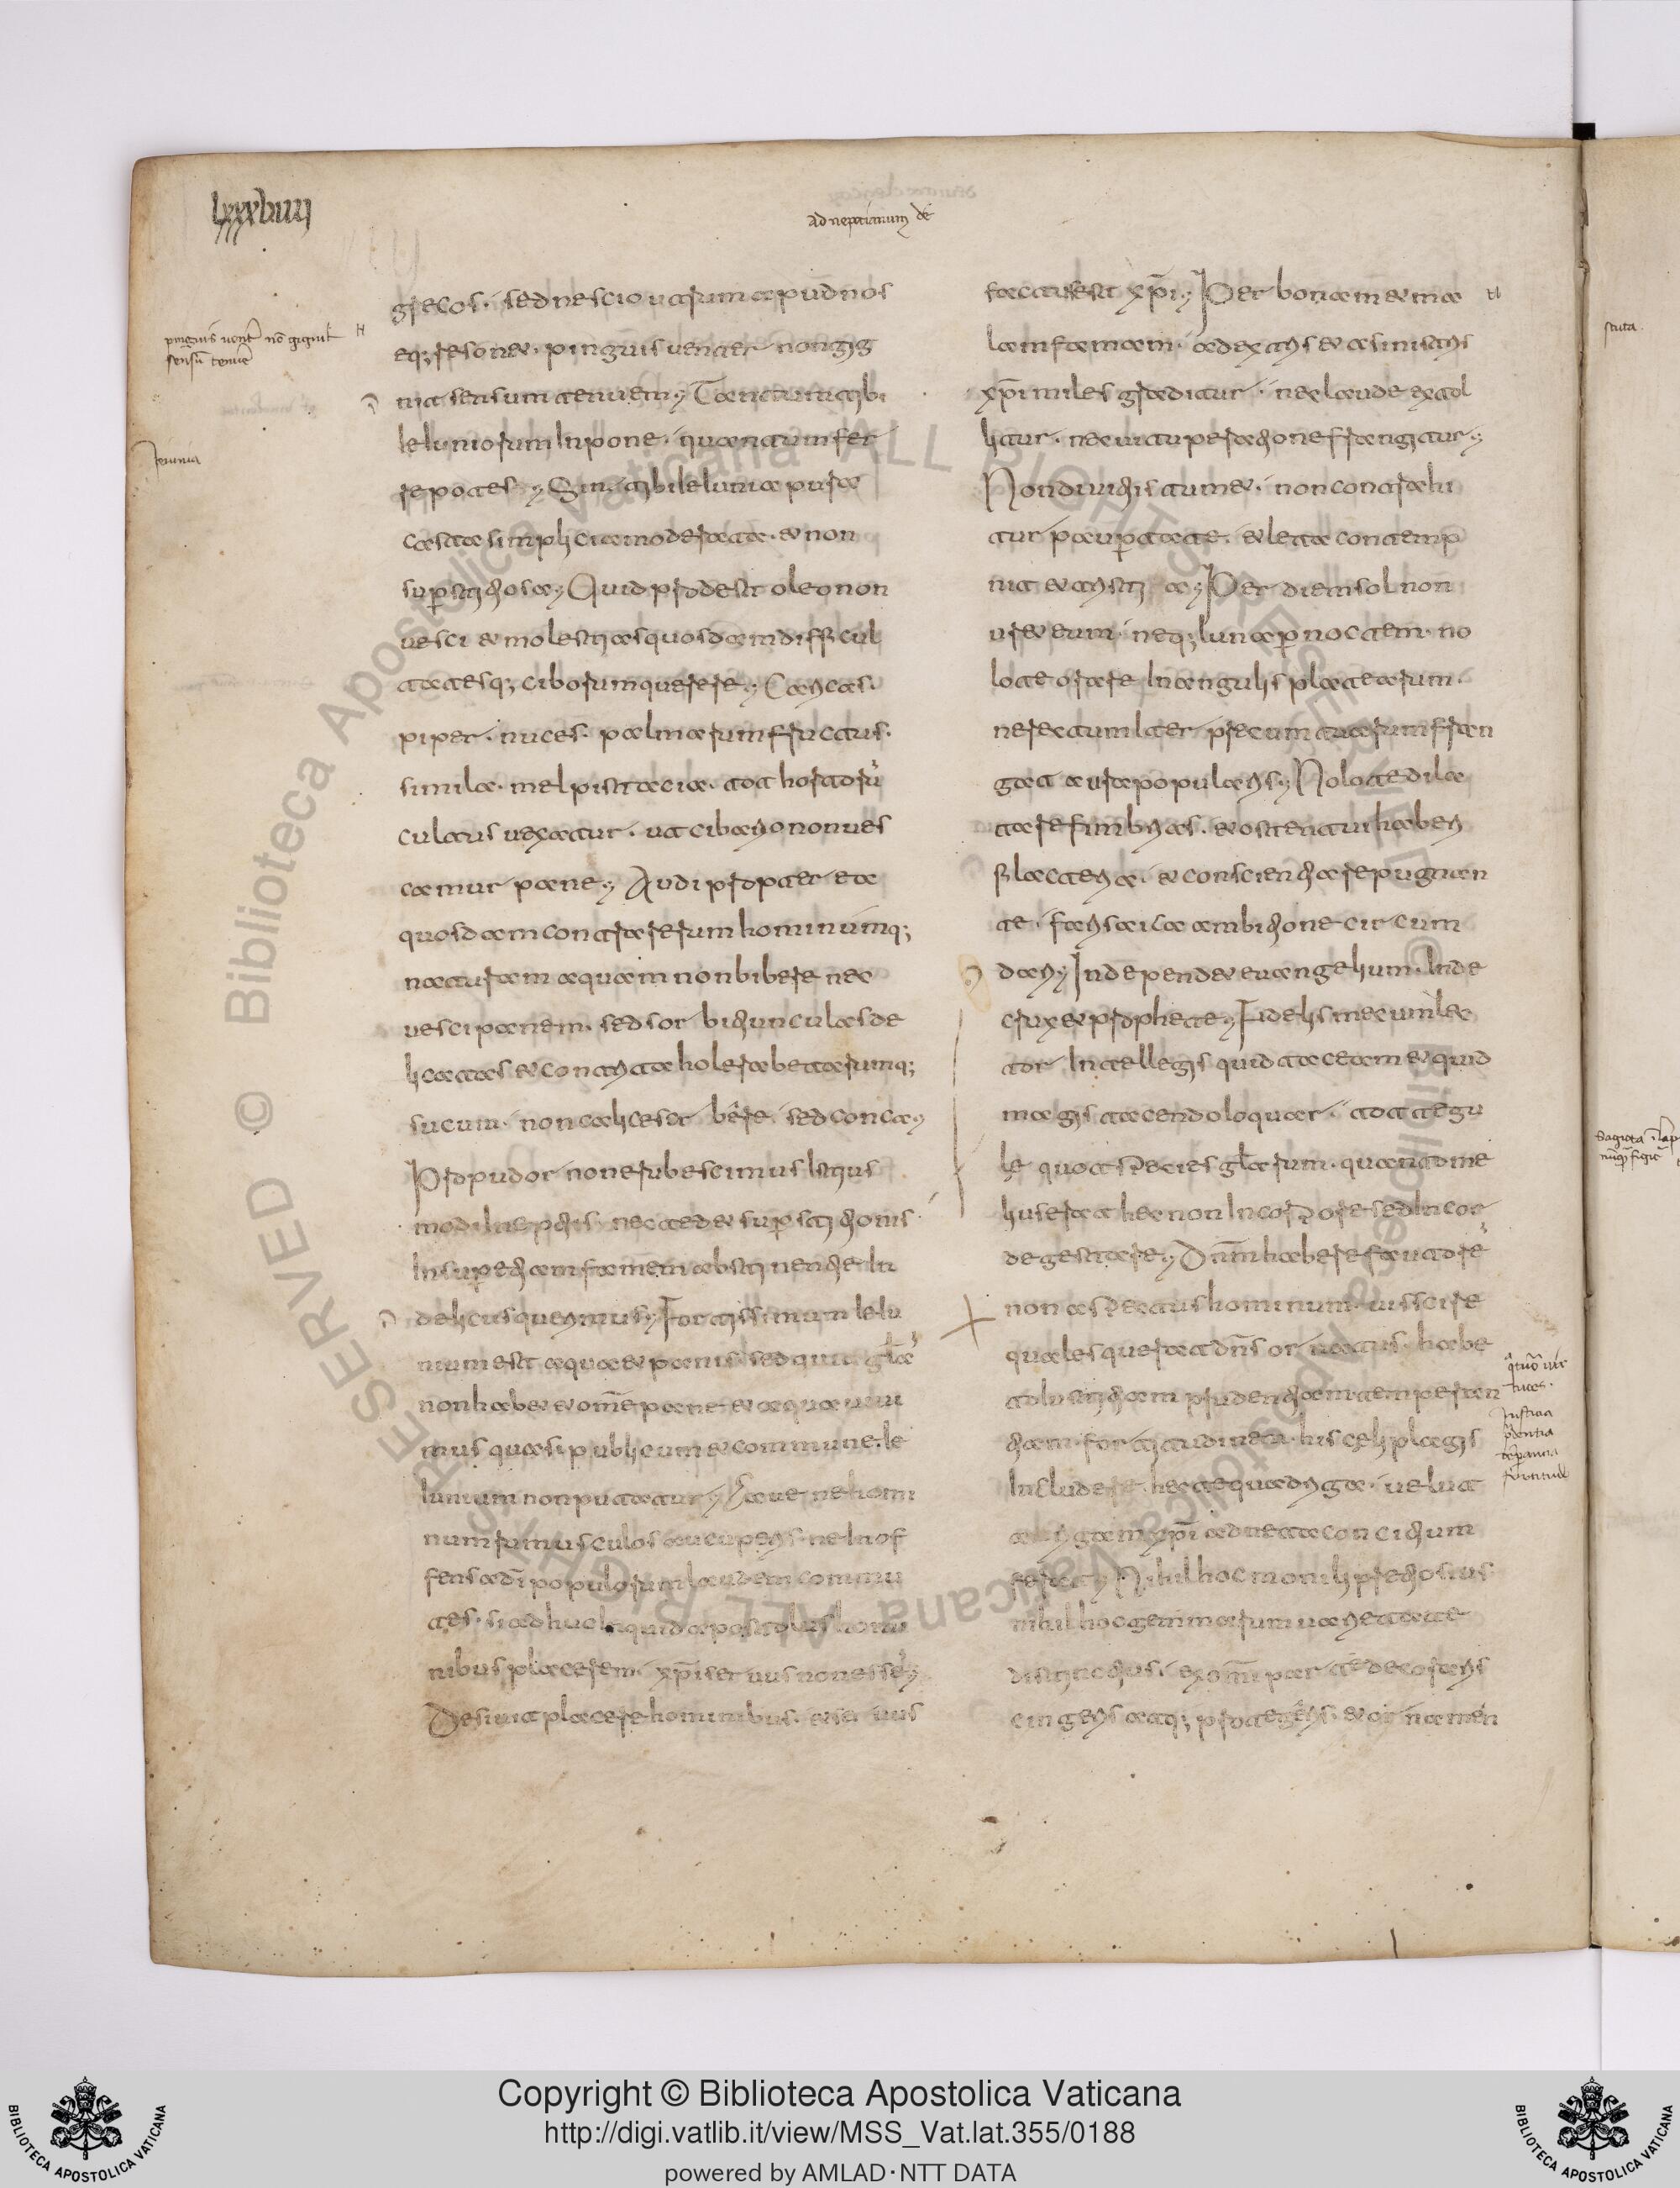 lxxxviiii
ad nepotianum de
grecos. sed nescio utrum apud nos
eq; resonet. pinguis venter non gig
nit sensum tenuem; Tantum tibi
leiuniorum inpone. quantum fer
re potes; Sint tibi leiunia pura
casta simplicia moderata. et non
sup̄stitiosa; Quid prodest oleo non
vesci et molestias quosdam difficul
tatesq; ciborum querere; Caricas.
piper. nuces. palmarum fructus.
simila. mel pistatacia. tota hortorū
cultus vexatur. ut cibario non ves
camur pane; Audi propter ea
quosdam contra rerum hominumq;
naturam aquam non bibere nec
vesci panem. sed sorbitiunculas de
licatas et contrita holera betarumq;
sucum. non calice sorbere. sed conca;
Pro pudor non erubescimus istius
modi ineptiis. nec tedet superstitionis
Insuper etiam famem abstinentie in
deliciis querimus; Fortissimum leiu
nium est aqua et panis. sed quia glā
non habet et om̄e pane et aqua vivi
mus quasi publicum et commune. le
iunium non putatur; Cave ne homi
num rumusculos aucuperis. ne in of
fensā dī populorum laudem commu
tes. si adhuc inquid apostolus homi
nibus placerem. xp̄i servus non essē;
Desivit placere hominibus. et servus
factus est xp̄i; Per bonam et ma
lam famam. a dextris et a sinistris
xp̄i miles graditur. nec laude extol
litur. nec vituperatione frangitur;
Non divitiis tumet. non contrahi
tur paup̄tate. et leta contemp
nit et tristia; Per diem sol non
uret eum. neq; luna p̄ noctem. no
lo te orare in angulis platearum.
ne rectum iter precum tuarum fran
gat aura popularis; Nolo te dila
tare fimbrias. et ostentui habere
filacteria. et conscientia repugnan
te. farisaica ambitione circum
dari; Inde pendet euangelium. Inde
crux et prophete; Fidelis mecum lec
tor intellegis quid taceam et quid
magis tacendo loquar. tot te gu
le quot species glārum. quanto me
lius erat hec non in corpore sed in cor
de gestare; Dn̄m habere fautorē
non aspectus hominum. vis scire
quales querat dn̄s ornatus. habe
to iustitiam prudentiam temperan
tiam. fortitudinem. his celi plagis
Includere. hec te quadriga. velut
aurigam xp̄i ad meta concitum
ferat; Nihil hoc monili pretiosius
nihil hoc gemmarum varietate
distinctius. ex om̄i parte decoraris
cingeris atq; protegeris. et ornamen
pinguis vent̄ nō gignit
sensū tenuē
Ieiunia
qtuor vir
tutes.
Iustitia
prudentia
tēperantia
fortitudo
scuta.
Sagitta ī lap
nūq̄ figit
Copyright © Biblioteca Apostolica Vaticana
http://digi.vatlib.it/view/MSS_Vat.lat.355/0188
powered by AMLAD·NTT DATA
BIBLIOTECA APOSTOLICA VATICANA
BIBLIOTECA APOSTOLICA VATICANA